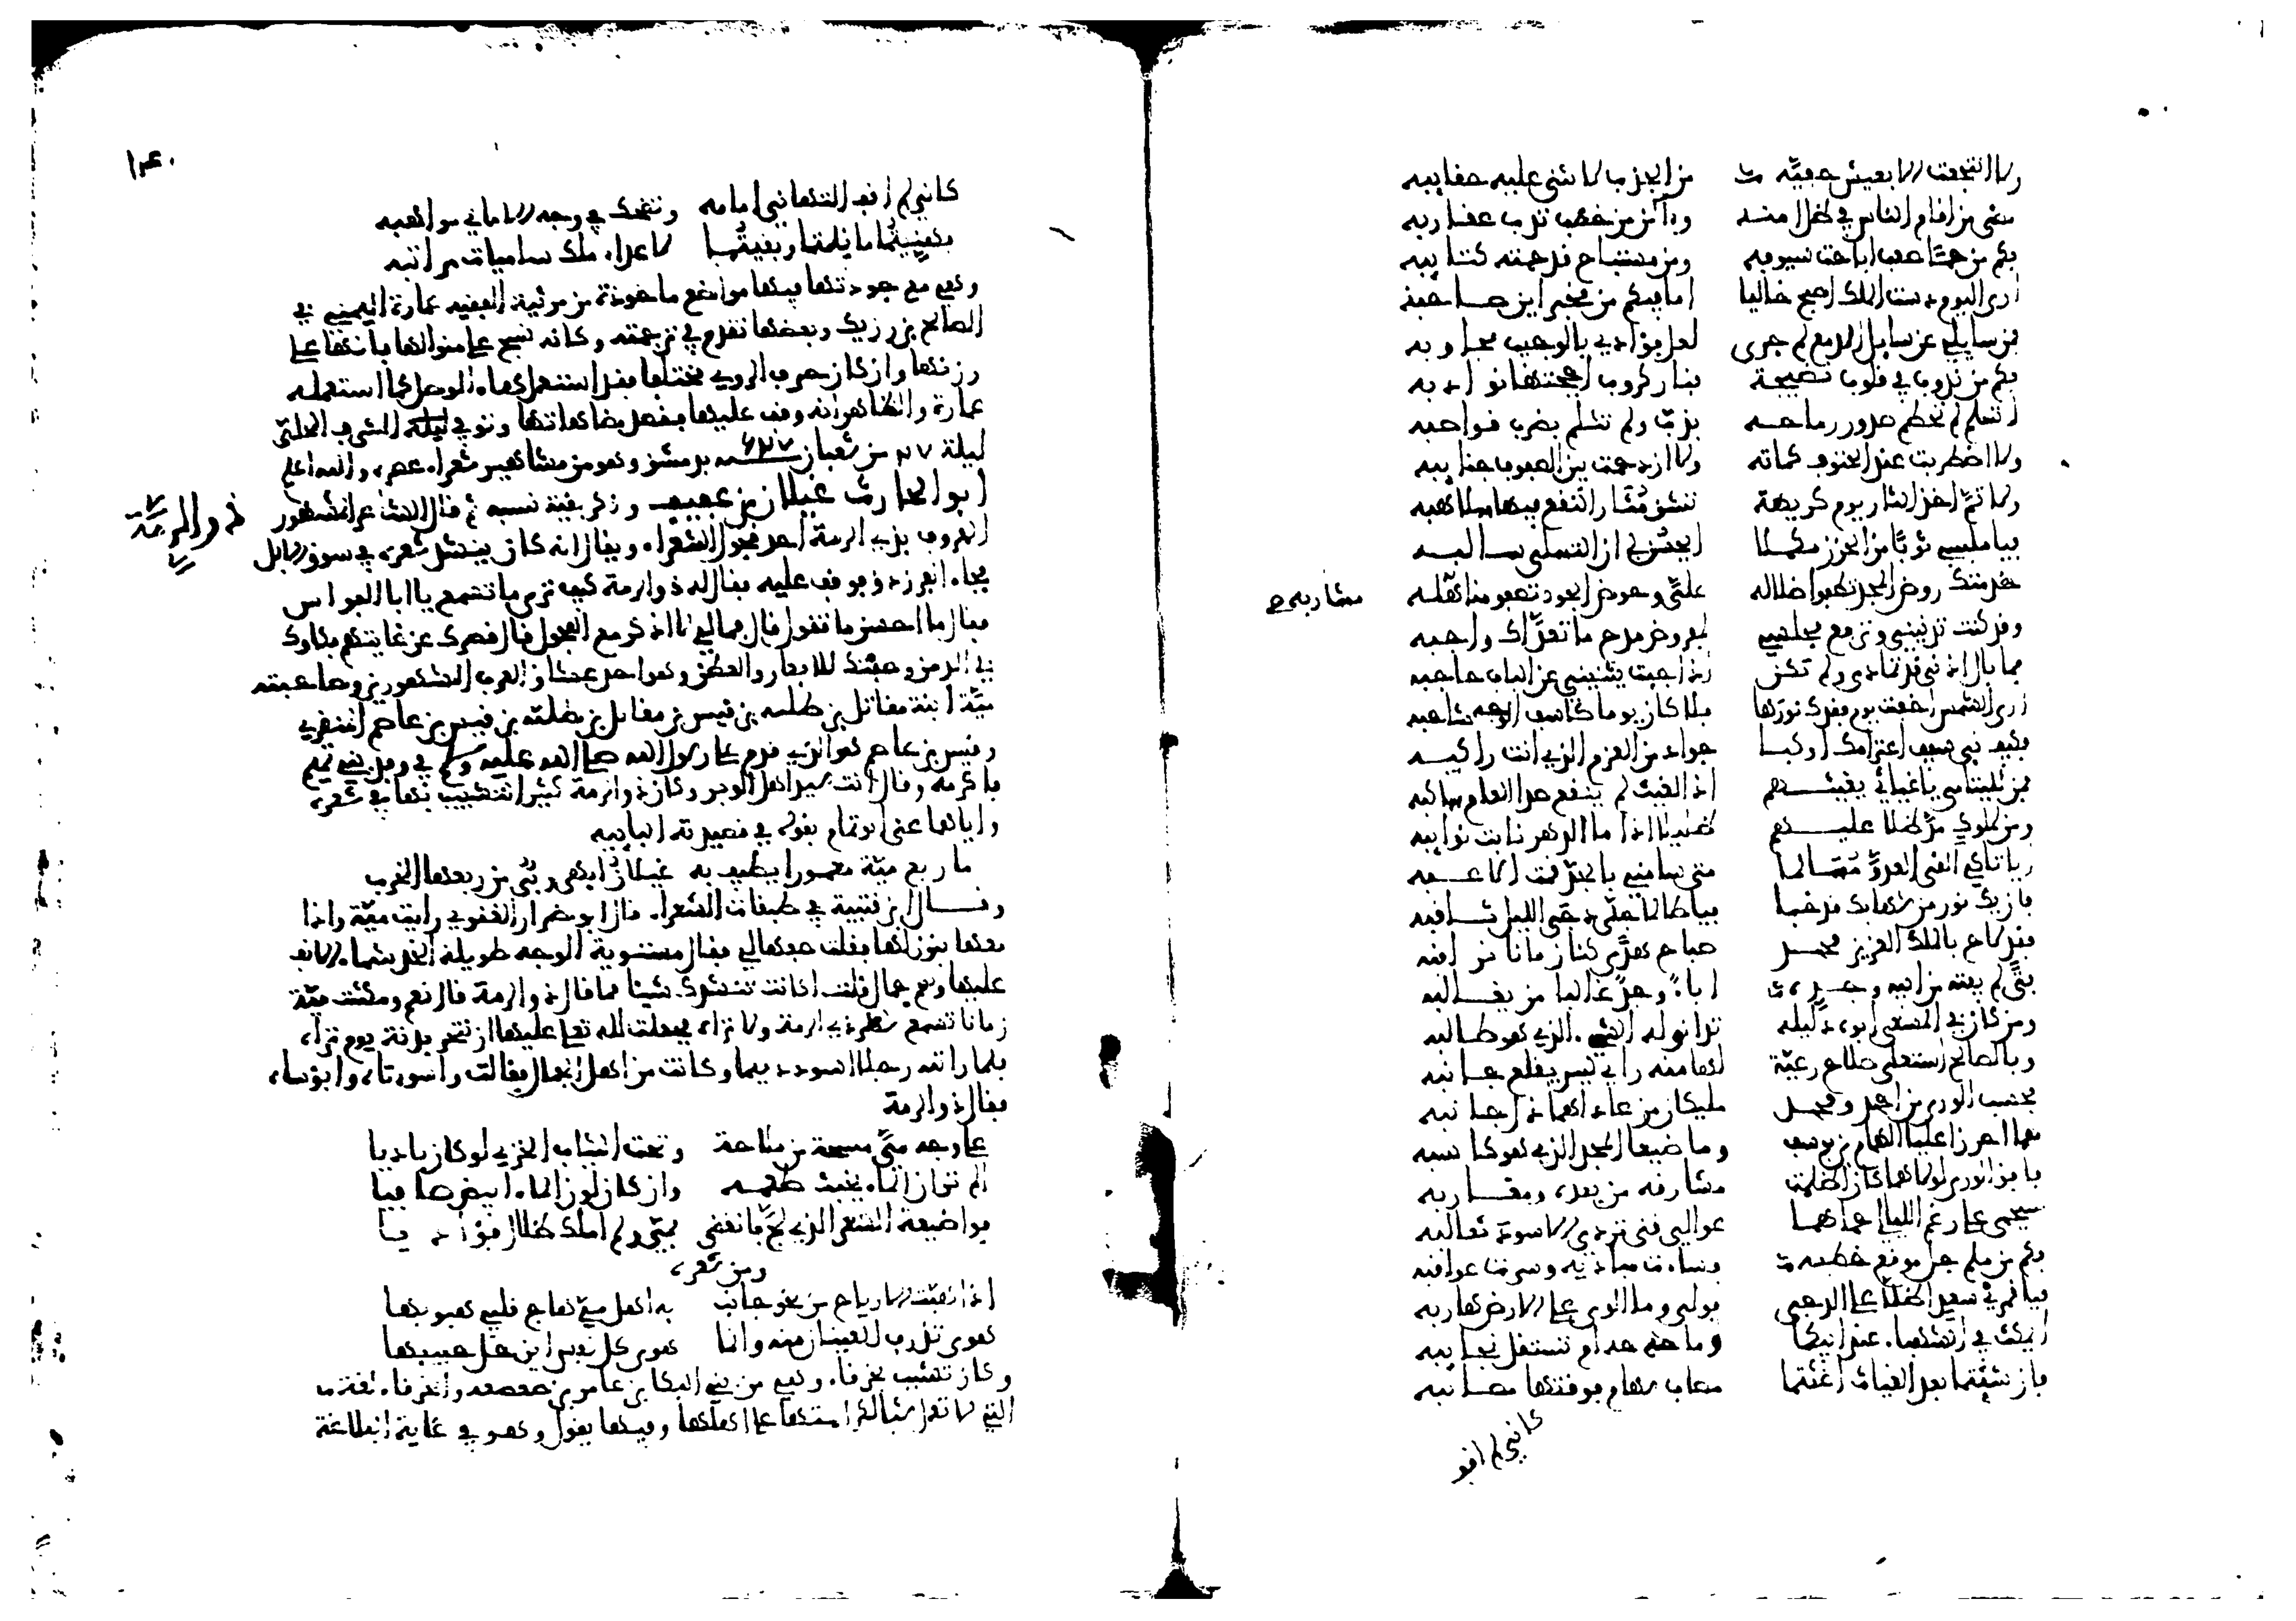 ولا انتجعت الا بعيش حقيبة من الجدب لا تثنى عليه حقايبه
مضى من اقام الناس في ظل امنه وآمن من خطب تدب عقاربه
فكم من حمى صعب اباحت سيوفه ومن مستباح قد حمته كتايبه
ارى اليوم دست الملك اصبح خاليا اما فيكم من مخبر اين صاحبه
فمن سايلي عن سايل الدمع لم جرى لعل فؤادي بالوجيب يجاوبه
فكم من ندوب في قلوب نضيجة بنار كروب اججتها نوادبه
اتسلم لم تحطم صدور رماحه بذب ولم تثلم بضرب قواضبه
ولا اضطربت عند الحتوف كماته ولا ازدحمت بين الصفوف جنايبه
ولا سم اخذ الثار يوم كريهة تشق مثار النقع فيها سلاهبه
فيا ملبسي ثوبا من الحزن مسبلا ايحسن بي ان التسلي سالبه
خدمتك روض المجد تضفو ظلاله علي وحوض الجود تصفو مناهله
مشاربه صح
وقد كنت تدنيني وترفع مجلسي لمفروض مدح ما تعداك واجبه
فما بال اذني قد تمادى ولم تكن اذا جيت يثنيني عن الباب حاجبه
ارى الشمس اخفت يوم فقدك نورها فلا كان يوما كاسف الوجه شاحبه
فكيف نبى سيف اعتزامك او كبا جواد من العزم الذي انت راكبه
فمن لليتامى يا غياثي يغيثهم اذ الغيث لم ينقع صدا العام ساكبه
ومن لملوك من ظلا عليهم ظليلا اذا ما الدهر نابت نوايبه
ايا تاركي القى العدو مسالما متى ساءني بالجد قمت الاعبه
فان يك نور من شهابك قد خبا فيا طالما جلى دجى الليل ثاقبه
فقد لاح بالملك العزيز محمد صباح هدى كنا زمانا نراقبه
فتى لم يفته من ابيه وجده اباء وجد غالبا من يغالبه
ومن كان في المسعى ابوه دليله تدانى له الشي الذي هو طالبه
وبالصالح استعلى صلاح رعية لها منه راى ليس يقلع جانبه
فحسب الورى من احمد ومحمد مليكان من عاداهما ذل جانبه
هما احرزا علياء الغازي بن يوسف وما ضيعا المجد الذي هو كاسبه
فافق الورى لولاهما كان اظلمت مشارقه من بعده ومغاربه
سيحمى على رغم الليالي حماهما عوالي فنى تردي الاسود ثعالبه
فكم من ملم جل موقع خطبه وساءت مباديه وسرت عواقبه
فيا قمري سعد اطلا على الدجى فولى وما الوى على الارض هاربه
ايمكث في الشهباء عبد ابيكما وما حق مدام تستقل نجايبه
فان شئتما بعد الغياث اغثتما مصاب سهام فوقتها مصايبه
كاني لم اقف

١٤٠
كاني لم اقف التهاني امامه وتضحك في وجه الاماني مواهبه
فهنيتما ما نلتما وبقيتما لاعلاء ملك ساميات مراتبه
وهي مع جودتها فيها مواضع ماخوذة من مرثية الفقيه عمارة اليمني في
الصالح بن رزيك وبعضها تقدم في ترجمته وكانه نسج على منوالها فانها على
وزنها وان كان حرف الروي مختلفا فقد استعمل هاء الوصل كما استعمله
عمارة والظاهر انه وقف عليها فقصد مضاهاتها وتوفي ليلة الشرف الحلي
ليلة ٢٧ من شعبان ٦٢٧ بدمشق وهو من مشاهير شعراء عصره والله اعلم
ذو الرمة
ابو الحارث غيلان بن عقبة وذكر بقية نسبه ثم قال الشاعر المشهور
المعروف بذي الرمة احد فحول الشعراء ويقال انه كان ينشد شعره في سوق الابل
فجاء الفرزدق فوقف عليه فقال له ذو الرمة كيف ترى ما تسمع يا ابا فراس
فقال ما احسن ما تقول قال فمالي لا اذكر مع الفحول قال قصرك عن غايتهم بكاوك
في الدمن وصفتك للابعار والعطن وهو احد عشاق العرب المشهورين وصاحبته
مية ابنة مقاتل بن طلبة بن قيس بن عاصم المنقري
وقيس بن عاصم هو الذي قدم على رسول الله صلى الله عليه وسلم في وفد بني تميم
فاكرمه وقال انت سيد اهل الوبر وكان ذو الرمة كثير التشبيب بها في شعره
واياها عنى ابو تمام بقوله في قصيدته البايية
ما ربع مية معمورا يطيف به غيلان ابهى ربى من ربعها الخرب
وقال ابن قتيبة في طبقات الشعراء قال ابو ضرار الغنوي رايت مية واذا
معها بنون لها فقلت صفها لي فقال مسنونة الوجه طويلة الخد شماء الانف
عليها وسم جمال قلت اكانت تنشدك شيئا مما قال ذو الرمة قال نعم ومكثت مية
زمانا تسمع شعر ذي الرمة ولا تراه فجعلت لله تعالى عليها ان تنحر بدنة يوم تراه
فلما راته رجلا اسود دميما وكانت من اهل الجمال فقالت واسوءتاه وابؤساه
فقال ذو الرمة
على وجه مي مسحة من ملاحة وتحت الثياب الخزي لو كان باديا
الم تر ان الماء يخبث طعمه وان كان لون الماء ابيض صافيا
فواضيعة الشعر الذي لج فانقضى بمي ولم املك ظلال فؤاديا
ومن شعره
اذا هبت الارياح من نحو جانب به اهل مي هاج قلبي هبوبها
هوى تذرف العينان منه وانما هوى كل نفس اين حل حبيبها
وكان تشبب بخرقاء وهي من بني البكاء بن عامر بن صعصعة والخرقاء
التي لا تعمل شيئا لكرامتها على اهلها وفيها يقول وهو في غاية البلاغة